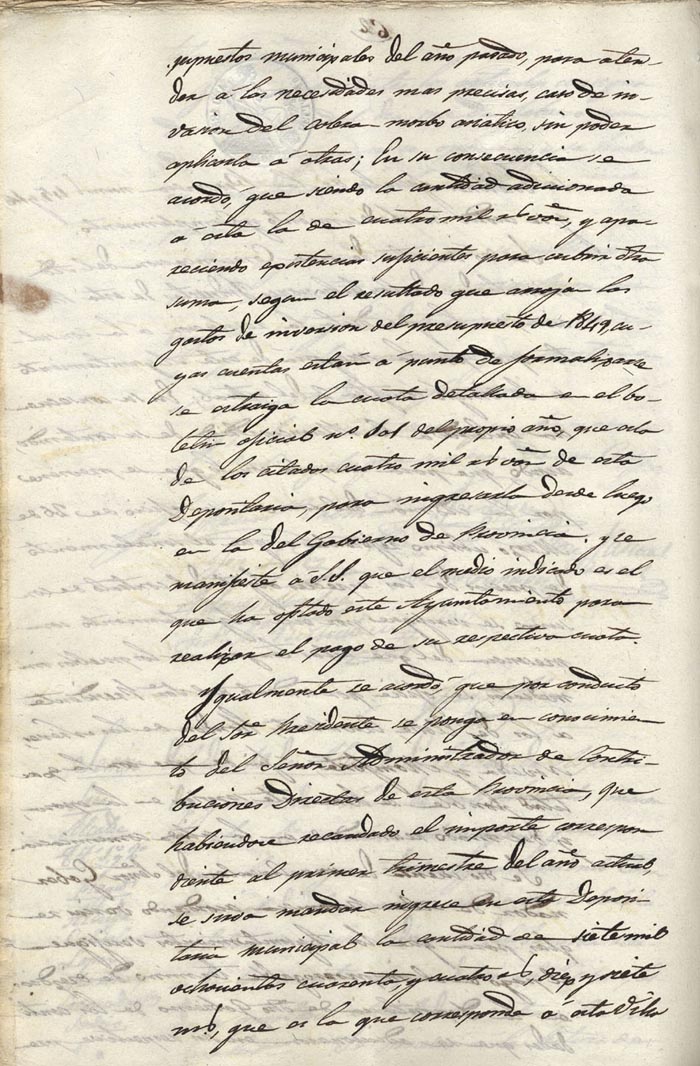 supuestos municipales del año pasado, para aten-
der á las necesidades mas precisas, caso de in-
vasion del colera-morbo asiatico, sin poder
aplicarla á otras; En su consecuencia se
acordó, que siendo la cantidad adicionada
á esta la de cuatro mil rs von, y apa-
reciendo existencias suficientes para cubrir dha
suma, segun el resultado que arroja los
gastos de inversion del presupuesto de 1849, cu-
yas cuentas estan á punto de formalizarse
se estraiga la cuota detallada en el bo-
letin oficial nº. 101 del propio año, que es la
de los citados cuatro mil rs von de esta
Depositaria, para ingresarla desde luego
en la del Gobierno de Provincia. y se
manifieste á S.S. que el medio indicado es el
que ha optado este Ayuntamiento para
realizar el pago de su respectiva cuota.
Ygualmente se acordó que por conducto
del Sor. Presidente se ponga en conocimien-
to del Señor Administrador de Contri-
buciones Directas de esta Provincia, que
habiendose recaudado el importe correspon
diente al primer trimestre del año actual,
se sirva mandar ingrese en esta Deposi-
taria municipal la cantidad de siete mil
ochocientos cuarenta, y cuatro rs, diez y siete
ms, que es la que corresponde á esta Villa